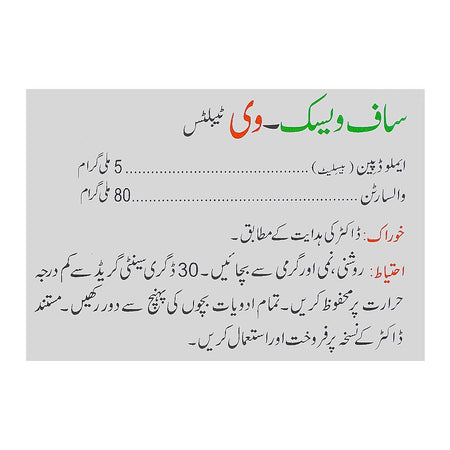 ساف ویسک۔وی ٹیبلٹس
ایملوڈپین (بیسلیٹ)..........................................5 ملی گرام
والسارٹن....................................................80 ملی گرام
خوراک: ڈاکٹر کی ہدایت کے مطابق۔
احتیاط: روشنی،نمی اور گرمی سے بچائیں۔ 30 ڈگری سینٹی گریڈ سے کم درجہ
حرارت پر محفوظ کریں۔تمام ادویات بچوں کی پہنچ سے دور رکھیں۔مستند
ڈاکٹر کے نسخہ پر فروخت اور استعمال کریں۔